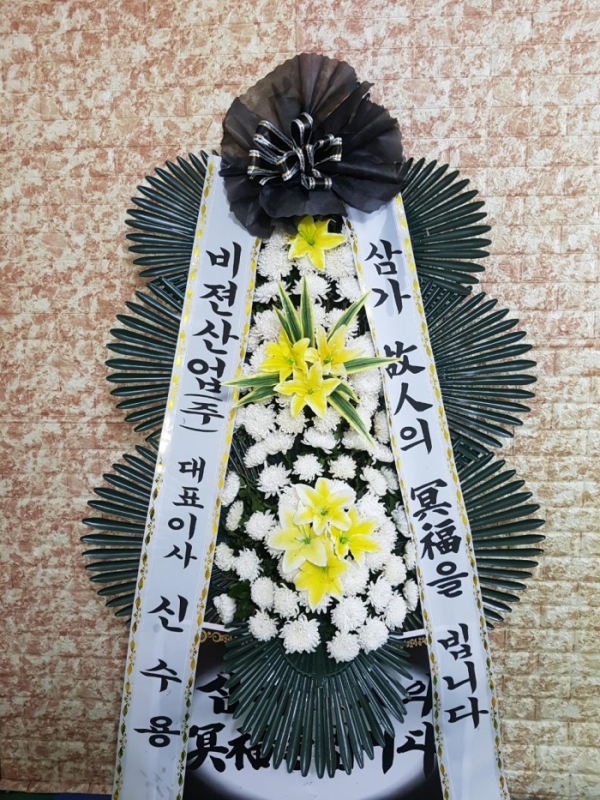 삼가 故人의 冥福을 빕니다
비젼산업(주) 대표이사 신수용
冥福